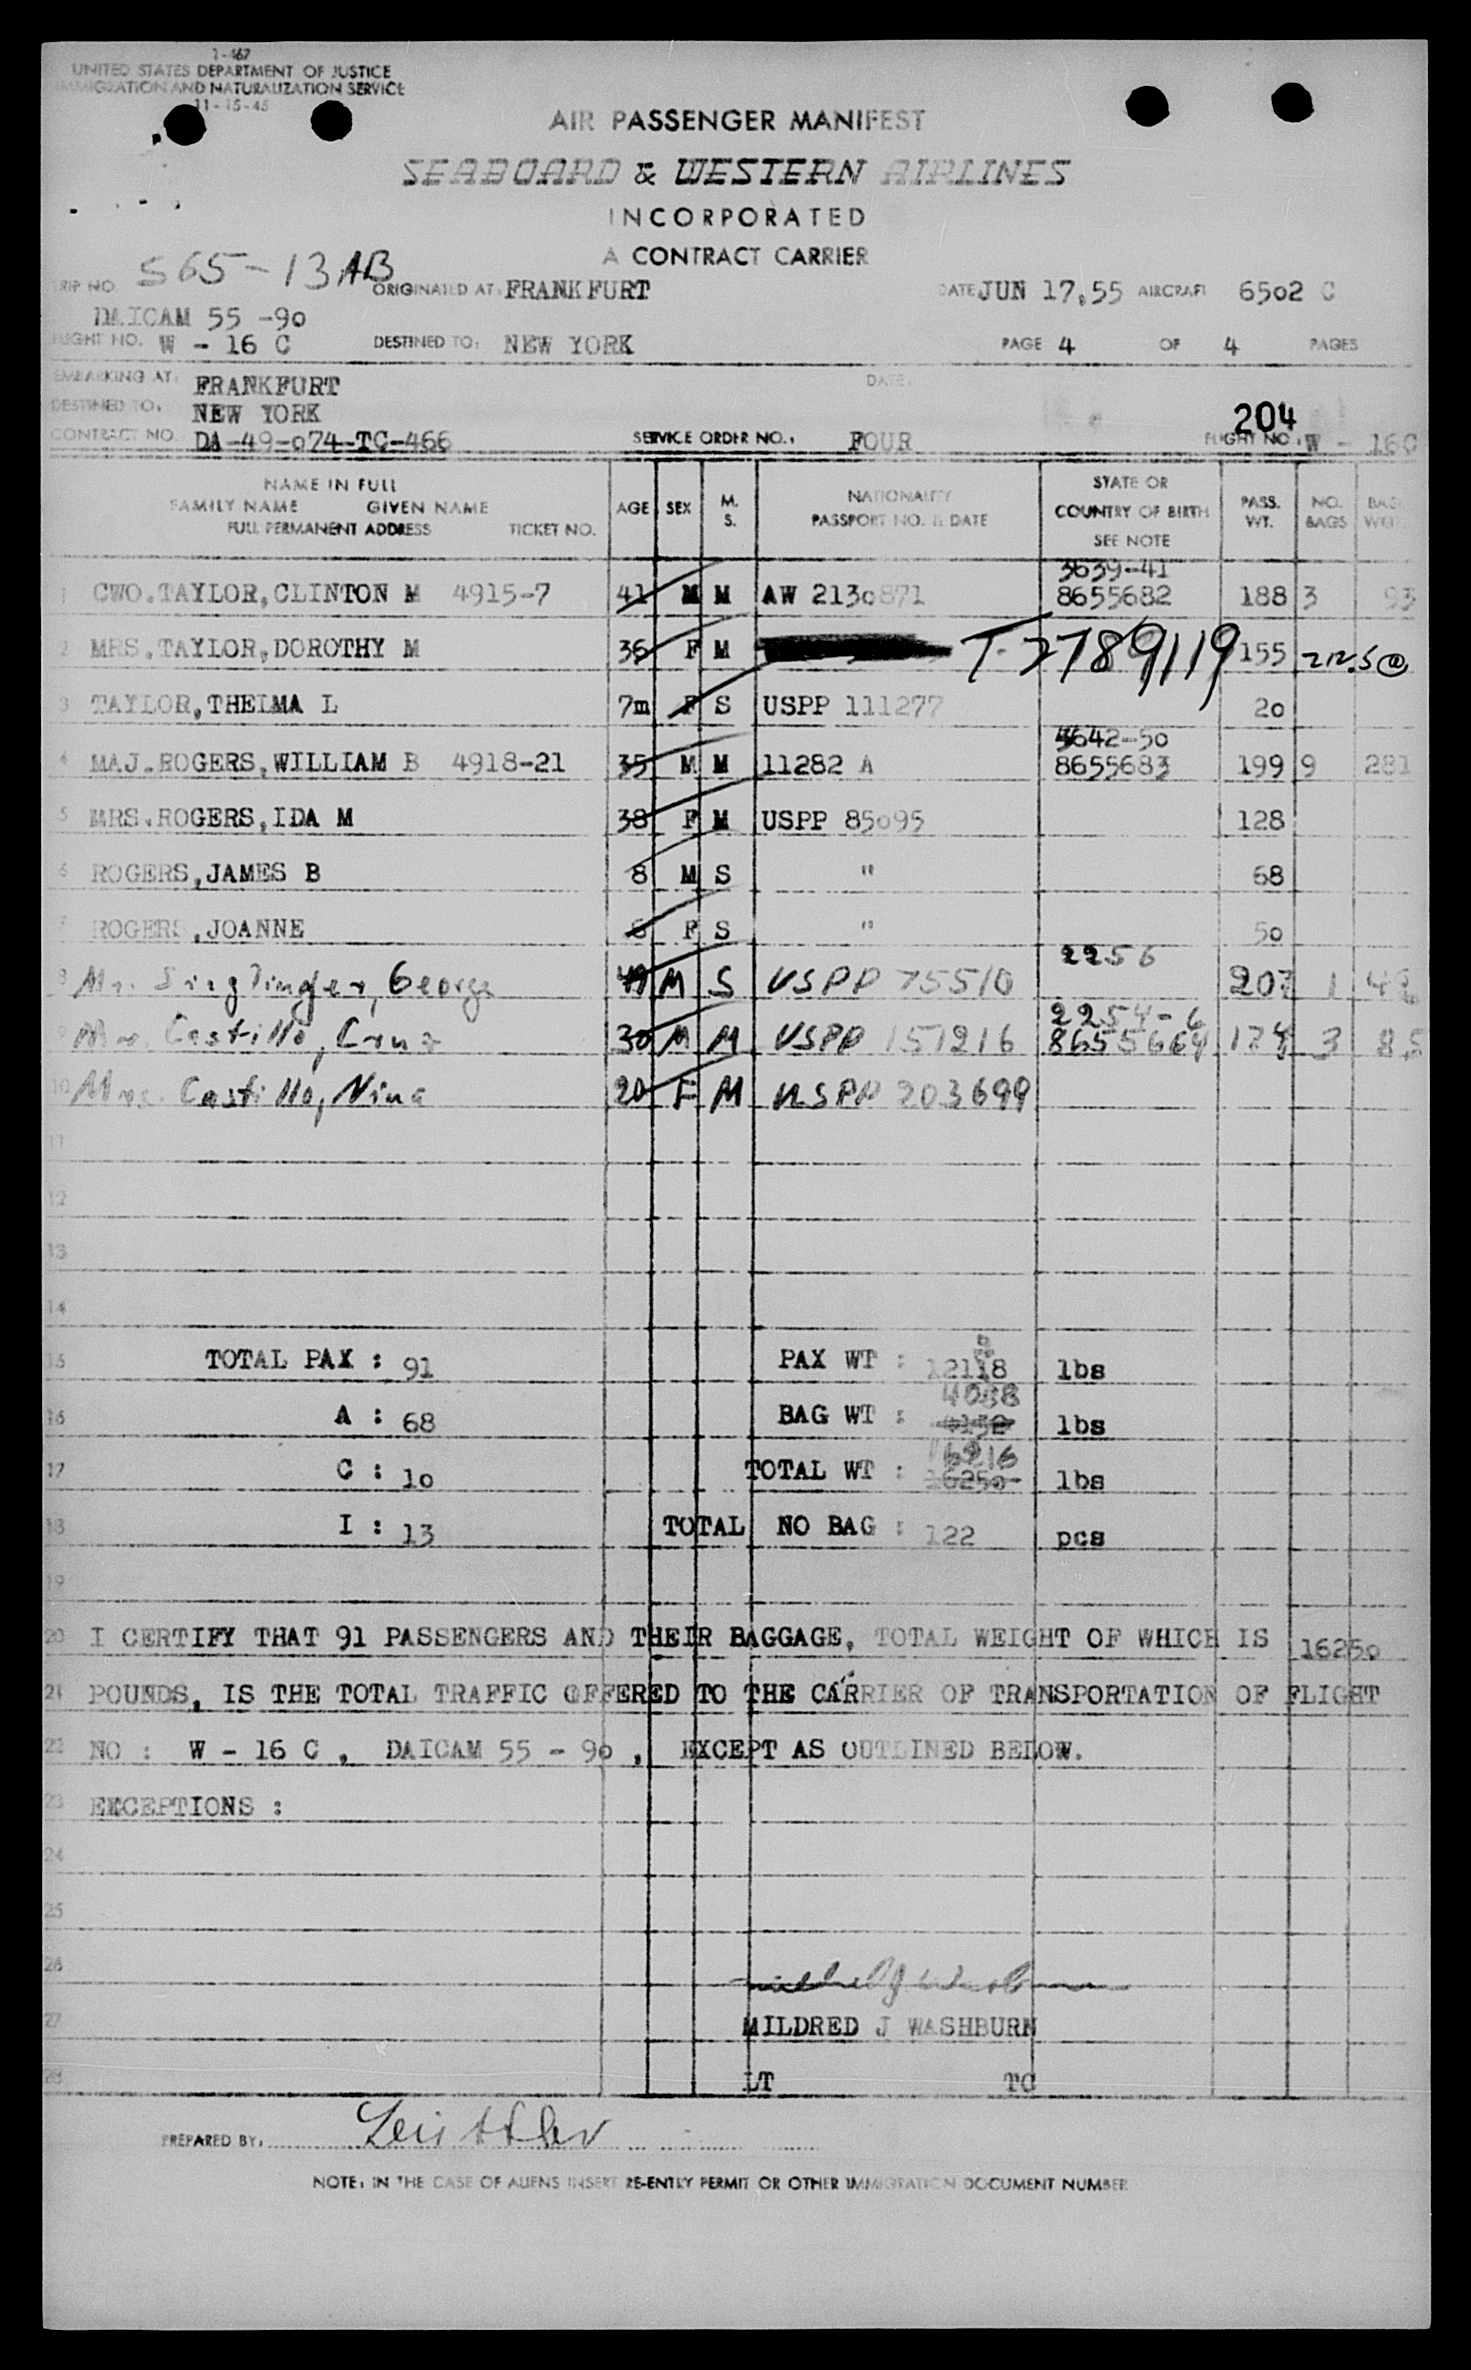 1-467
UNITED STATES DEPARTMENT OF JUSTICE
IMMIGRATION AND NATURALIZATION SERVICE
11-15-45
AIR PASSENGER MANIFEST
SEABOARD & WESTERN AIRLINES
INCORPORATED
A CONTRACT CARRIER
TRIP NO. S65-13AB ORIGINATED AT: FRANKFURT DATE JUN 17,55 AIRCRAFT 6502 C
DAICAM 55 -90
FLIGHT NO. W - 16 C DESTINED TO: NEW YORK PAGE 4 OF 4 PAGES
EMBARKING AT: FRANKFURT DATE:
DESTINED TO: NEW YORK 204
CONTRACT NO. DA-49-074-TC-466 SERVICE ORDER NO.: FOUR FLIGHT NO.: W - 16C
NAME IN FULL
FAMILY NAME GIVEN NAME
FULL PERMANENT ADDRESS TICKET NO.
AGE SEX M. S. NATIONALITY PASSPORT NO. & DATE STATE OR COUNTRY OF BIRTH SEE NOTE PASS. WT. NO. BAGS BAG. WGT.
3639-41
1 CWO.TAYLOR,CLINTON M 4915-7 41 M M AW 2130871 8655682 188 3 93
2 MRS.TAYLOR,DOROTHY M 36 F M T-2789119 155 212.5@
3 TAYLOR,THELMA L 7m F S USPP 111277 20
3642-50
4 MAJ.ROGERS,WILLIAM B 4918-21 35 M M 11282 A 8655683 199 9 281
5 MRS.ROGERS,IDA M 38 F M USPP 85095 128
6 ROGERS,JAMES B 8 M S " 68
7 ROGERS,JOANNE 6 F S " 50
2256
8 Mr. Singlinger, George 49 M S USPP 75510 207 1
2254-6
9 Mr. Castillo, Cruz 30 M M USPP 151216 8655664 174 3 85
10 Mrs. Castillo, Nina 20 F M USPP 203699
11
12
13
14
15 TOTAL PAX : 91 PAX WT : 12118 lbs
4088
16 A : 68 BAG WT : 4132 lbs
16216
17 C : 10 TOTAL WT : 16250 lbs
18 I : 13 TOTAL NO BAG : 122 pcs
19
20 I CERTIFY THAT 91 PASSENGERS AND THEIR BAGGAGE, TOTAL WEIGHT OF WHICH IS 16250
21 POUNDS, IS THE TOTAL TRAFFIC OFFERED TO THE CARRIER OF TRANSPORTATION OF FLIGHT
22 NO : W - 16 C , DAICAM 55 - 90 , EXCEPT AS OUTLINED BELOW.
23 EXCEPTIONS :
24
25
26 Mildred J Washburn
27 MILDRED J WASHBURN
28 LT TC
PREPARED BY: Leistler
NOTE: IN THE CASE OF ALIENS INSERT RE-ENTRY PERMIT OR OTHER IMMIGRATION DOCUMENT NUMBER